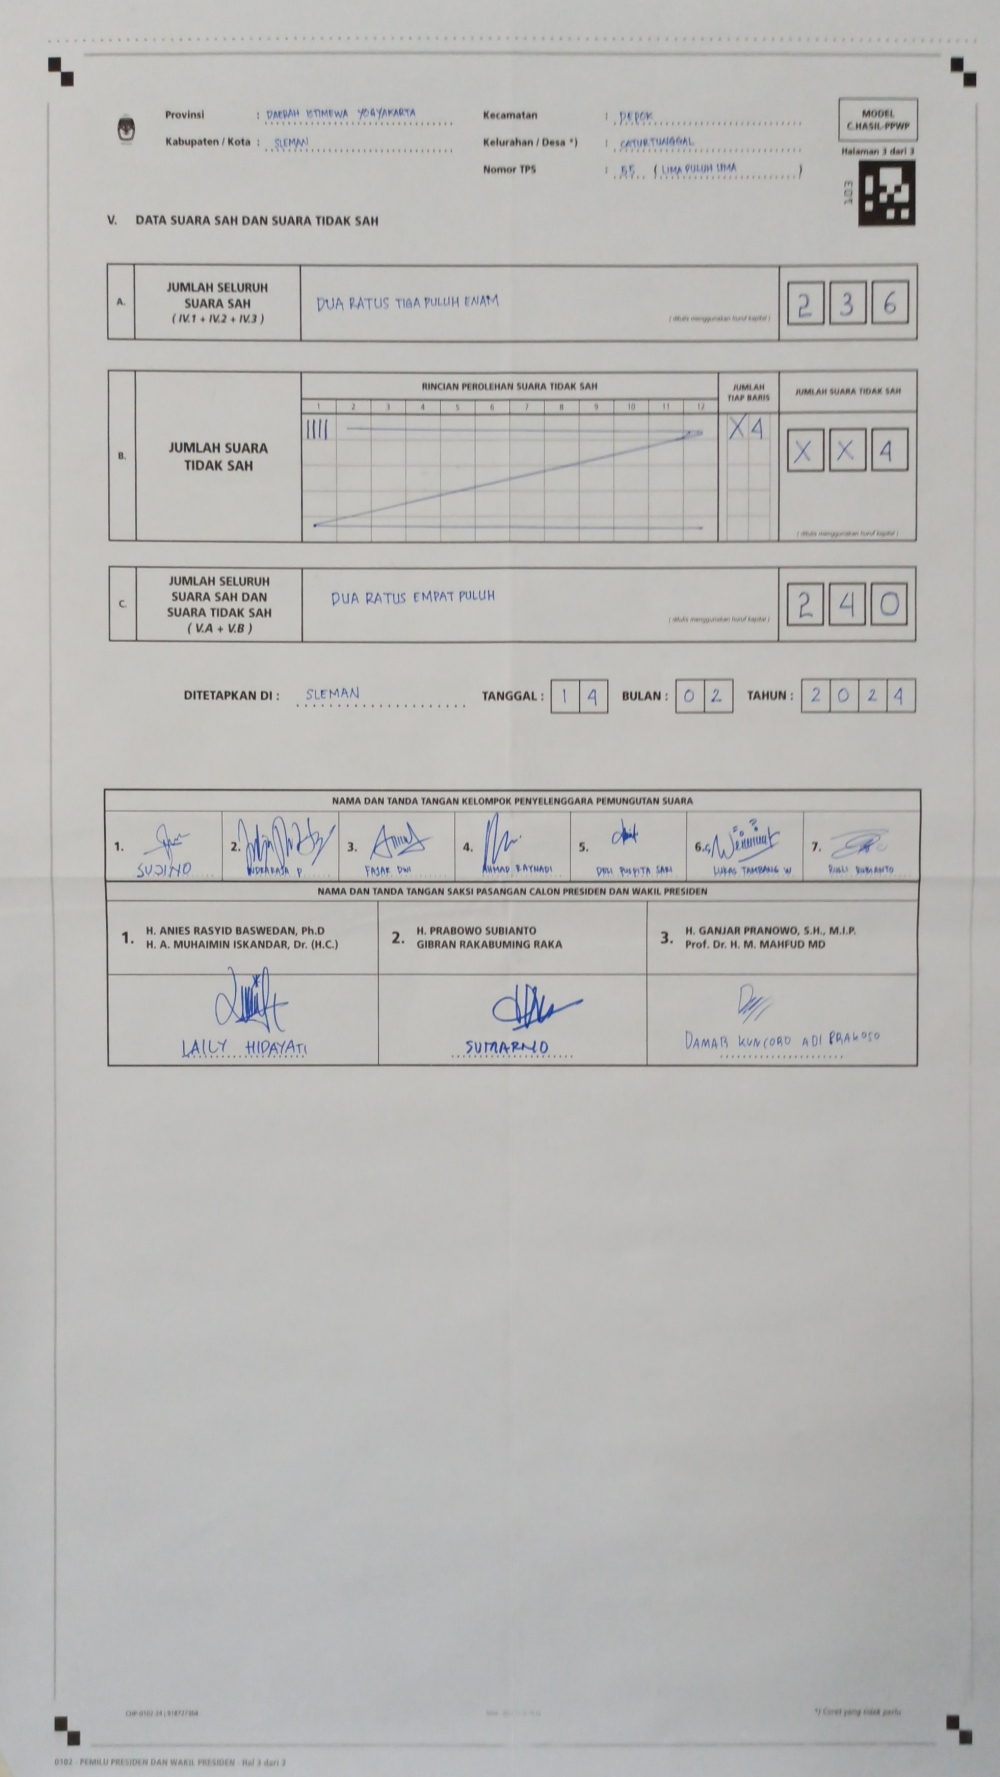 Provinsi : DAERAH ISTIMEWA YOGYAKARTA
Kabupaten / Kota : SLEMAN
Kecamatan : DEPOK
Kelurahan / Desa *) : CATURTUNGGAL
Nomor TPS : 55 ( LIMA PULUH LIMA )
MODEL
C.HASIL-PPWP
Halaman 3 dari 3
103
V. DATA SUARA SAH DAN SUARA TIDAK SAH
A. JUMLAH SELURUH
SUARA SAH
( IV.1 + IV.2 + IV.3 )
DUA RATUS TIGA PULUH ENAM
( ditulis menggunakan huruf kapital )
2 3 6
B. JUMLAH SUARA
TIDAK SAH
RINCIAN PEROLEHAN SUARA TIDAK SAH
1 2 3 4 5 6 7 8 9 10 11 12
JUMLAH
TIAP BARIS
X 4
JUMLAH SUARA TIDAK SAH
X X 4
( ditulis menggunakan huruf kapital )
C. JUMLAH SELURUH
SUARA SAH DAN
SUARA TIDAK SAH
( V.A + V.B )
DUA RATUS EMPAT PULUH
( ditulis menggunakan huruf kapital )
2 4 0
DITETAPKAN DI : SLEMAN TANGGAL : 1 4 BULAN : 0 2 TAHUN : 2 0 2 4
NAMA DAN TANDA TANGAN KELOMPOK PENYELENGGARA PEMUNGUTAN SUARA
1. 2. 3. 4. 5. 6. 7.
SUJINO
INDRARAJA P.
FAJAR DWI
AHMAD RAYHADI
PUSPITA SARI
LUKAS TAMBANG W
RUSLI
NAMA DAN TANDA TANGAN SAKSI PASANGAN CALON PRESIDEN DAN WAKIL PRESIDEN
1. H. ANIES RASYID BASWEDAN, Ph.D
H. A. MUHAIMIN ISKANDAR, Dr. (H.C.)
2. H. PRABOWO SUBIANTO
GIBRAN RAKABUMING RAKA
3. H. GANJAR PRANOWO, S.H., M.I.P.
Prof. Dr. H. M. MAHFUD MD
LAILY HIDAYATI
SUMARNO
DAMAR KUNCORO ADI PRAKOSO
*) Coret yang tidak perlu
0102 - PEMILU PRESIDEN DAN WAKIL PRESIDEN - Hal 3 dari 3